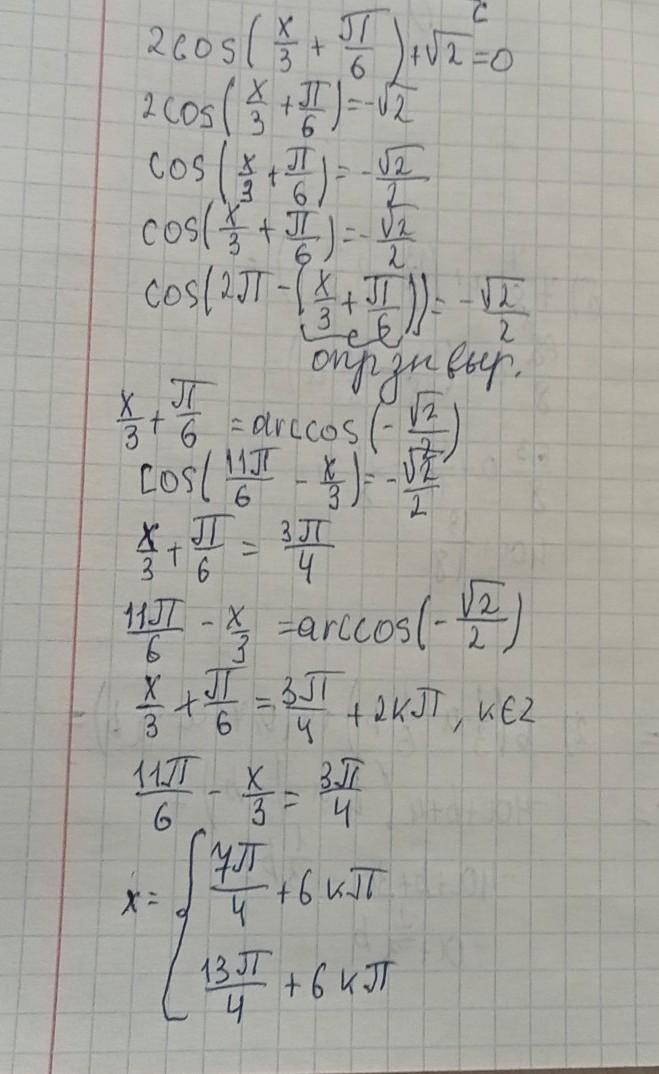 2cos(x/3 + π/6) + √2 = 0
2cos(x/3 + π/6) = -√2
cos(x/3 + π/6) = -√2/2
cos(x/3 + π/6) = -√2/2
cos(2π - (x/3 + π/6)) = -√2/2
опр зн выр.
x/3 + π/6 = arccos(-√2/2)
cos(11π/6 - x/3) = -√2/2
x/3 + π/6 = 3π/4
11π/6 - x/3 = arccos(-√2/2)
x/3 + π/6 = 3π/4 + 2кπ, к∈z
11π/6 - x/3 = 3π/4
x = [ 7π/4 + 6кπ
13π/4 + 6кπ